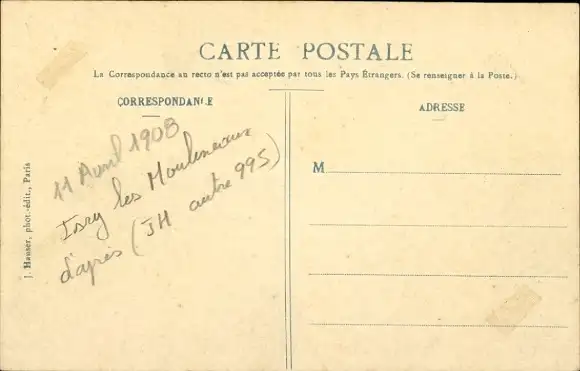 CARTE POSTALE
La Correspondance au recto n'est pas acceptée par tous les Pays Étrangers. (Se renseigner à la Poste.)
CORRESPONDANCE
ADRESSE
11 Avril 1908
Issy les Moulineaux
d'après (JH autre 995)
M
J. Hauser, phot.-édit., Paris